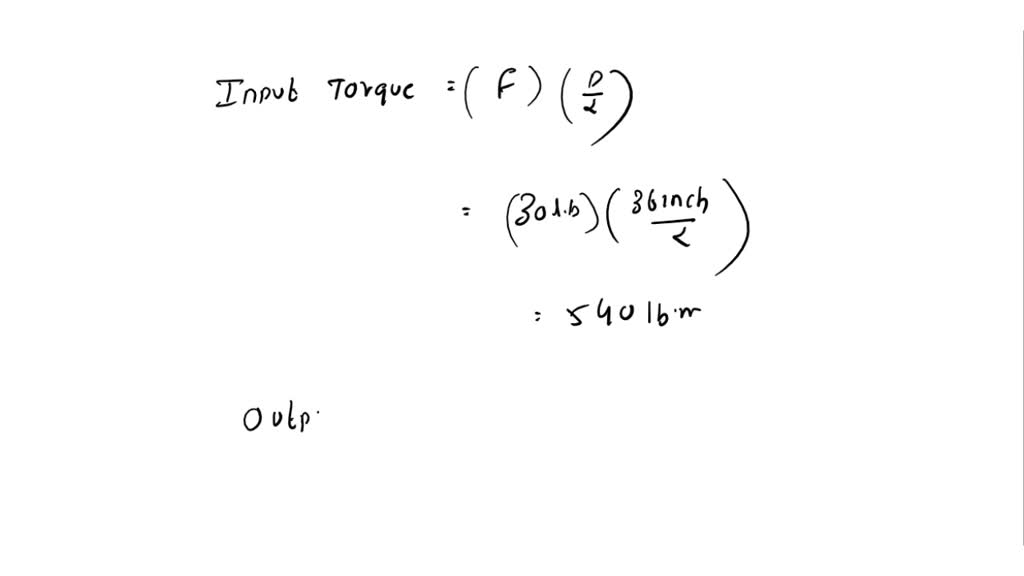 Input Torque = (F) (D/2)
= (30 lb) (36 inch/2)
= 540 lb.in
Outp